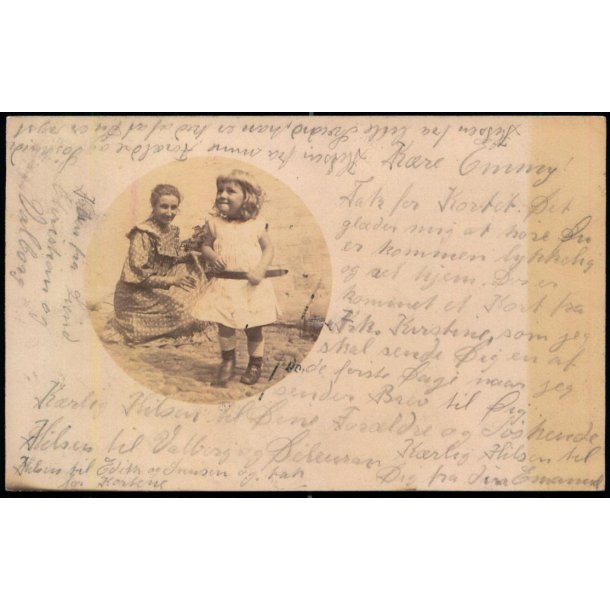 Kære Emmy!
Tak for Kortet. Det
glæder mig at høre Du
er kommen lykkelig
og vel hjem. Der er
kommet et Kort fra
Frk. Kirstine, som jeg
skal sende Dig en af
de første Dage naar jeg
sender Brev til Dig.
Kærlig Hilsen til Dine Forældre og Søskende
Hilsen til Valborg og
Kærlig Hilsen til
Hilsen til Edith og og tak
for Kortene
Dig fra Emanuel
Hilsen fra lille han er ked af at Du er rejst
Hilsen fra mine Forældre og
Hilsen fra
og
Valborg